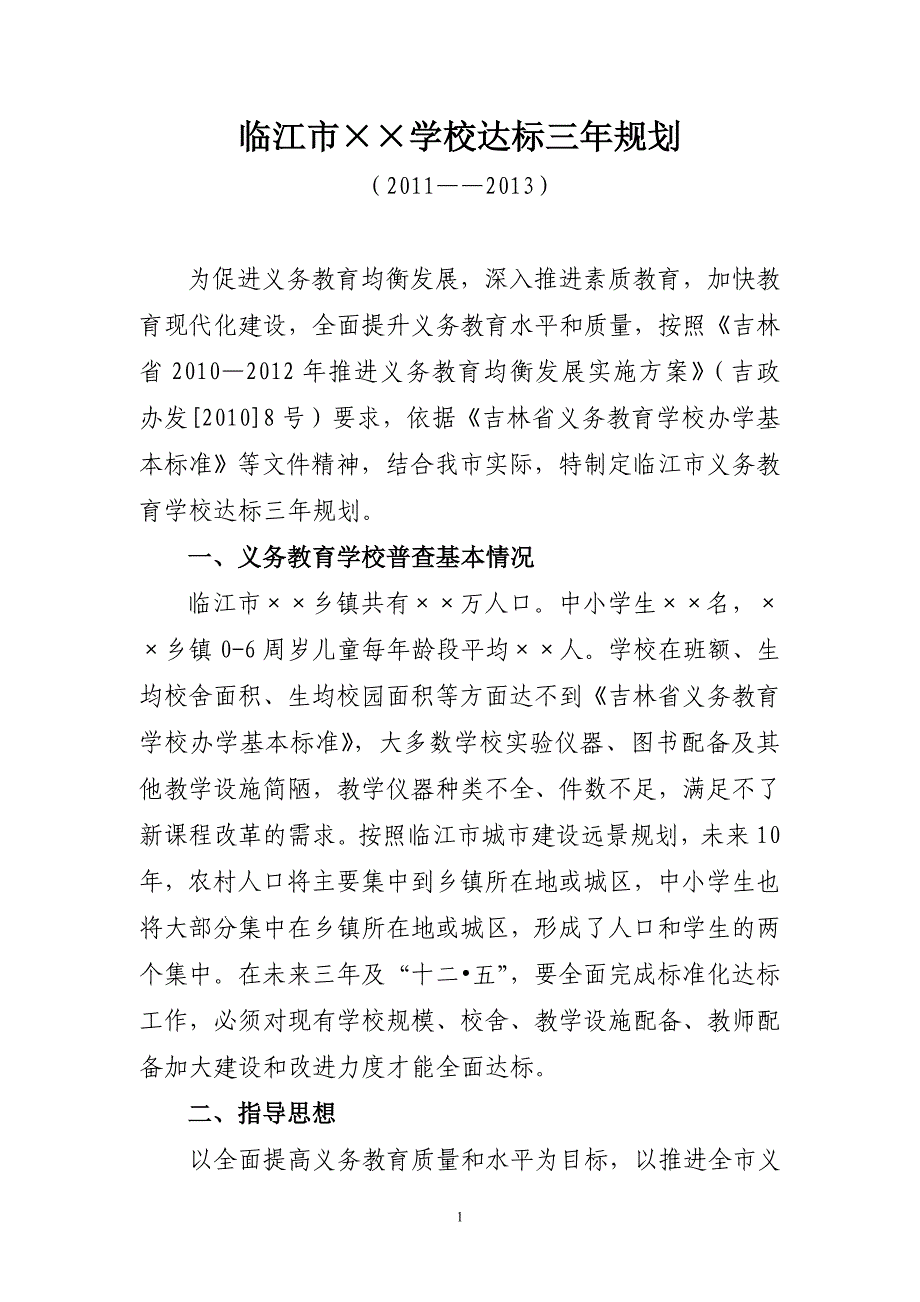 临江市××学校达标三年规划
（2011——2013）
为促进义务教育均衡发展，深入推进素质教育，加快教
育现代化建设，全面提升义务教育水平和质量，按照《吉林
省 2010—2012 年推进义务教育均衡发展实施方案》（吉政
办发[2010]8 号）要求，依据《吉林省义务教育学校办学基
本标准》等文件精神，结合我市实际，特制定临江市义务教
育学校达标三年规划。
一、义务教育学校普查基本情况
临江市××乡镇共有××万人口。中小学生××名，×
×乡镇 0-6 周岁儿童每年龄段平均××人。学校在班额、生
均校舍面积、生均校园面积等方面达不到《吉林省义务教育
学校办学基本标准》，大多数学校实验仪器、图书配备及其
他教学设施简陋，教学仪器种类不全、件数不足，满足不了
新课程改革的需求。按照临江市城市建设远景规划，未来 10
年，农村人口将主要集中到乡镇所在地或城区，中小学生也
将大部分集中在乡镇所在地或城区，形成了人口和学生的两
个集中。在未来三年及“十二•五”，要全面完成标准化达标
工作，必须对现有学校规模、校舍、教学设施配备、教师配
备加大建设和改进力度才能全面达标。
二、指导思想
以全面提高义务教育质量和水平为目标，以推进全市义
1